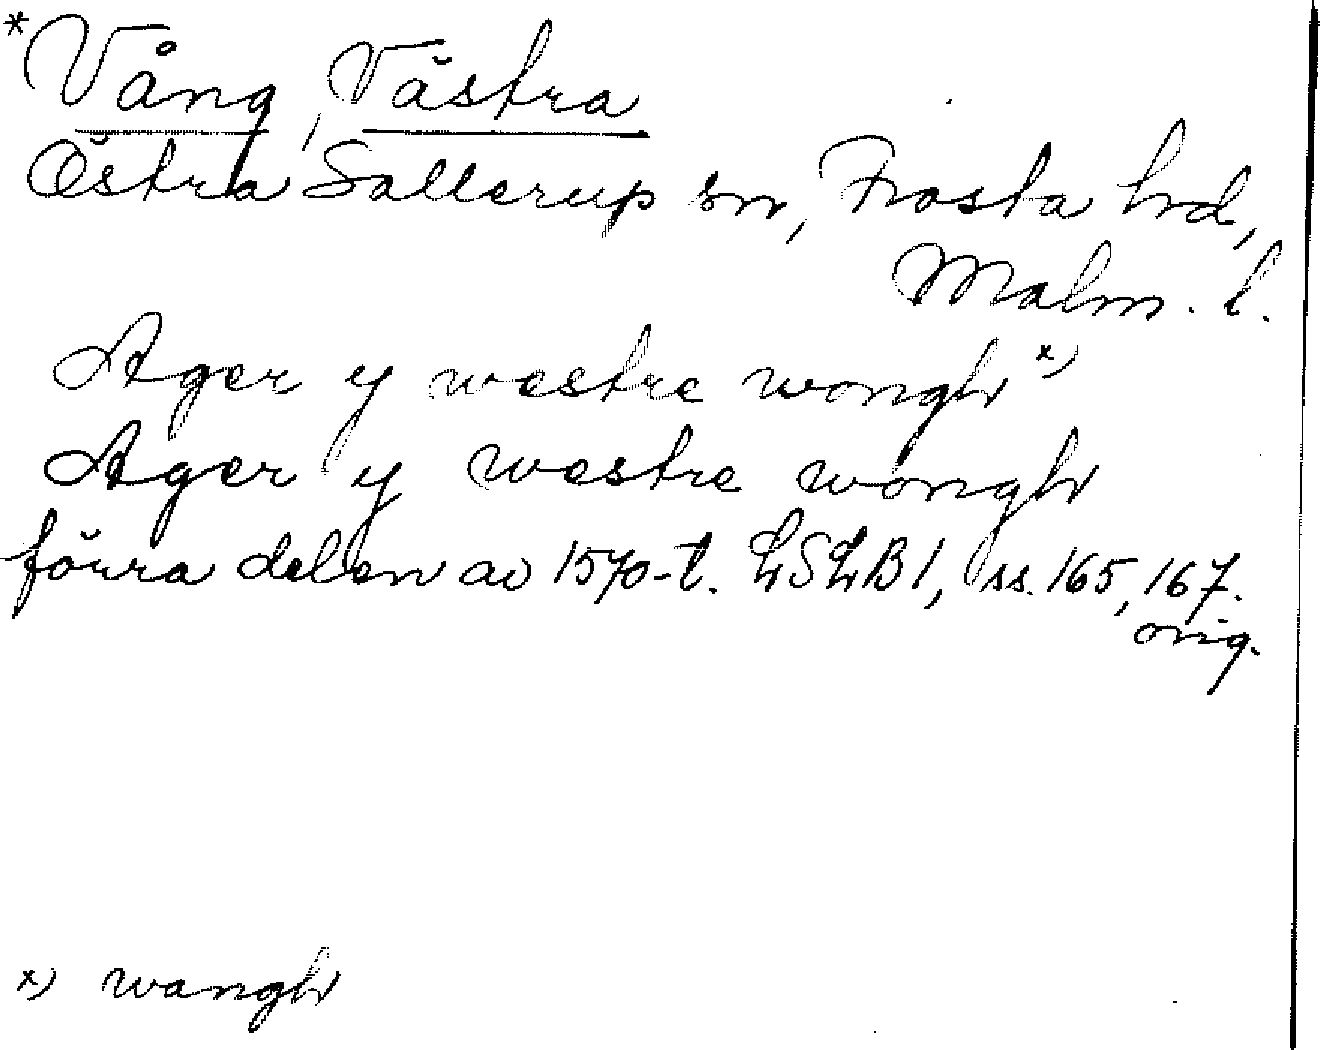 *Vång, Västra
Östra Sallerup sn, Frosta hd,
Malm. l.
Ager y westre wongh x)
Ager y westre wongh
förra delen av 1570-t. LSLB 1, ss. 165, 167.
orig.
x) wangh